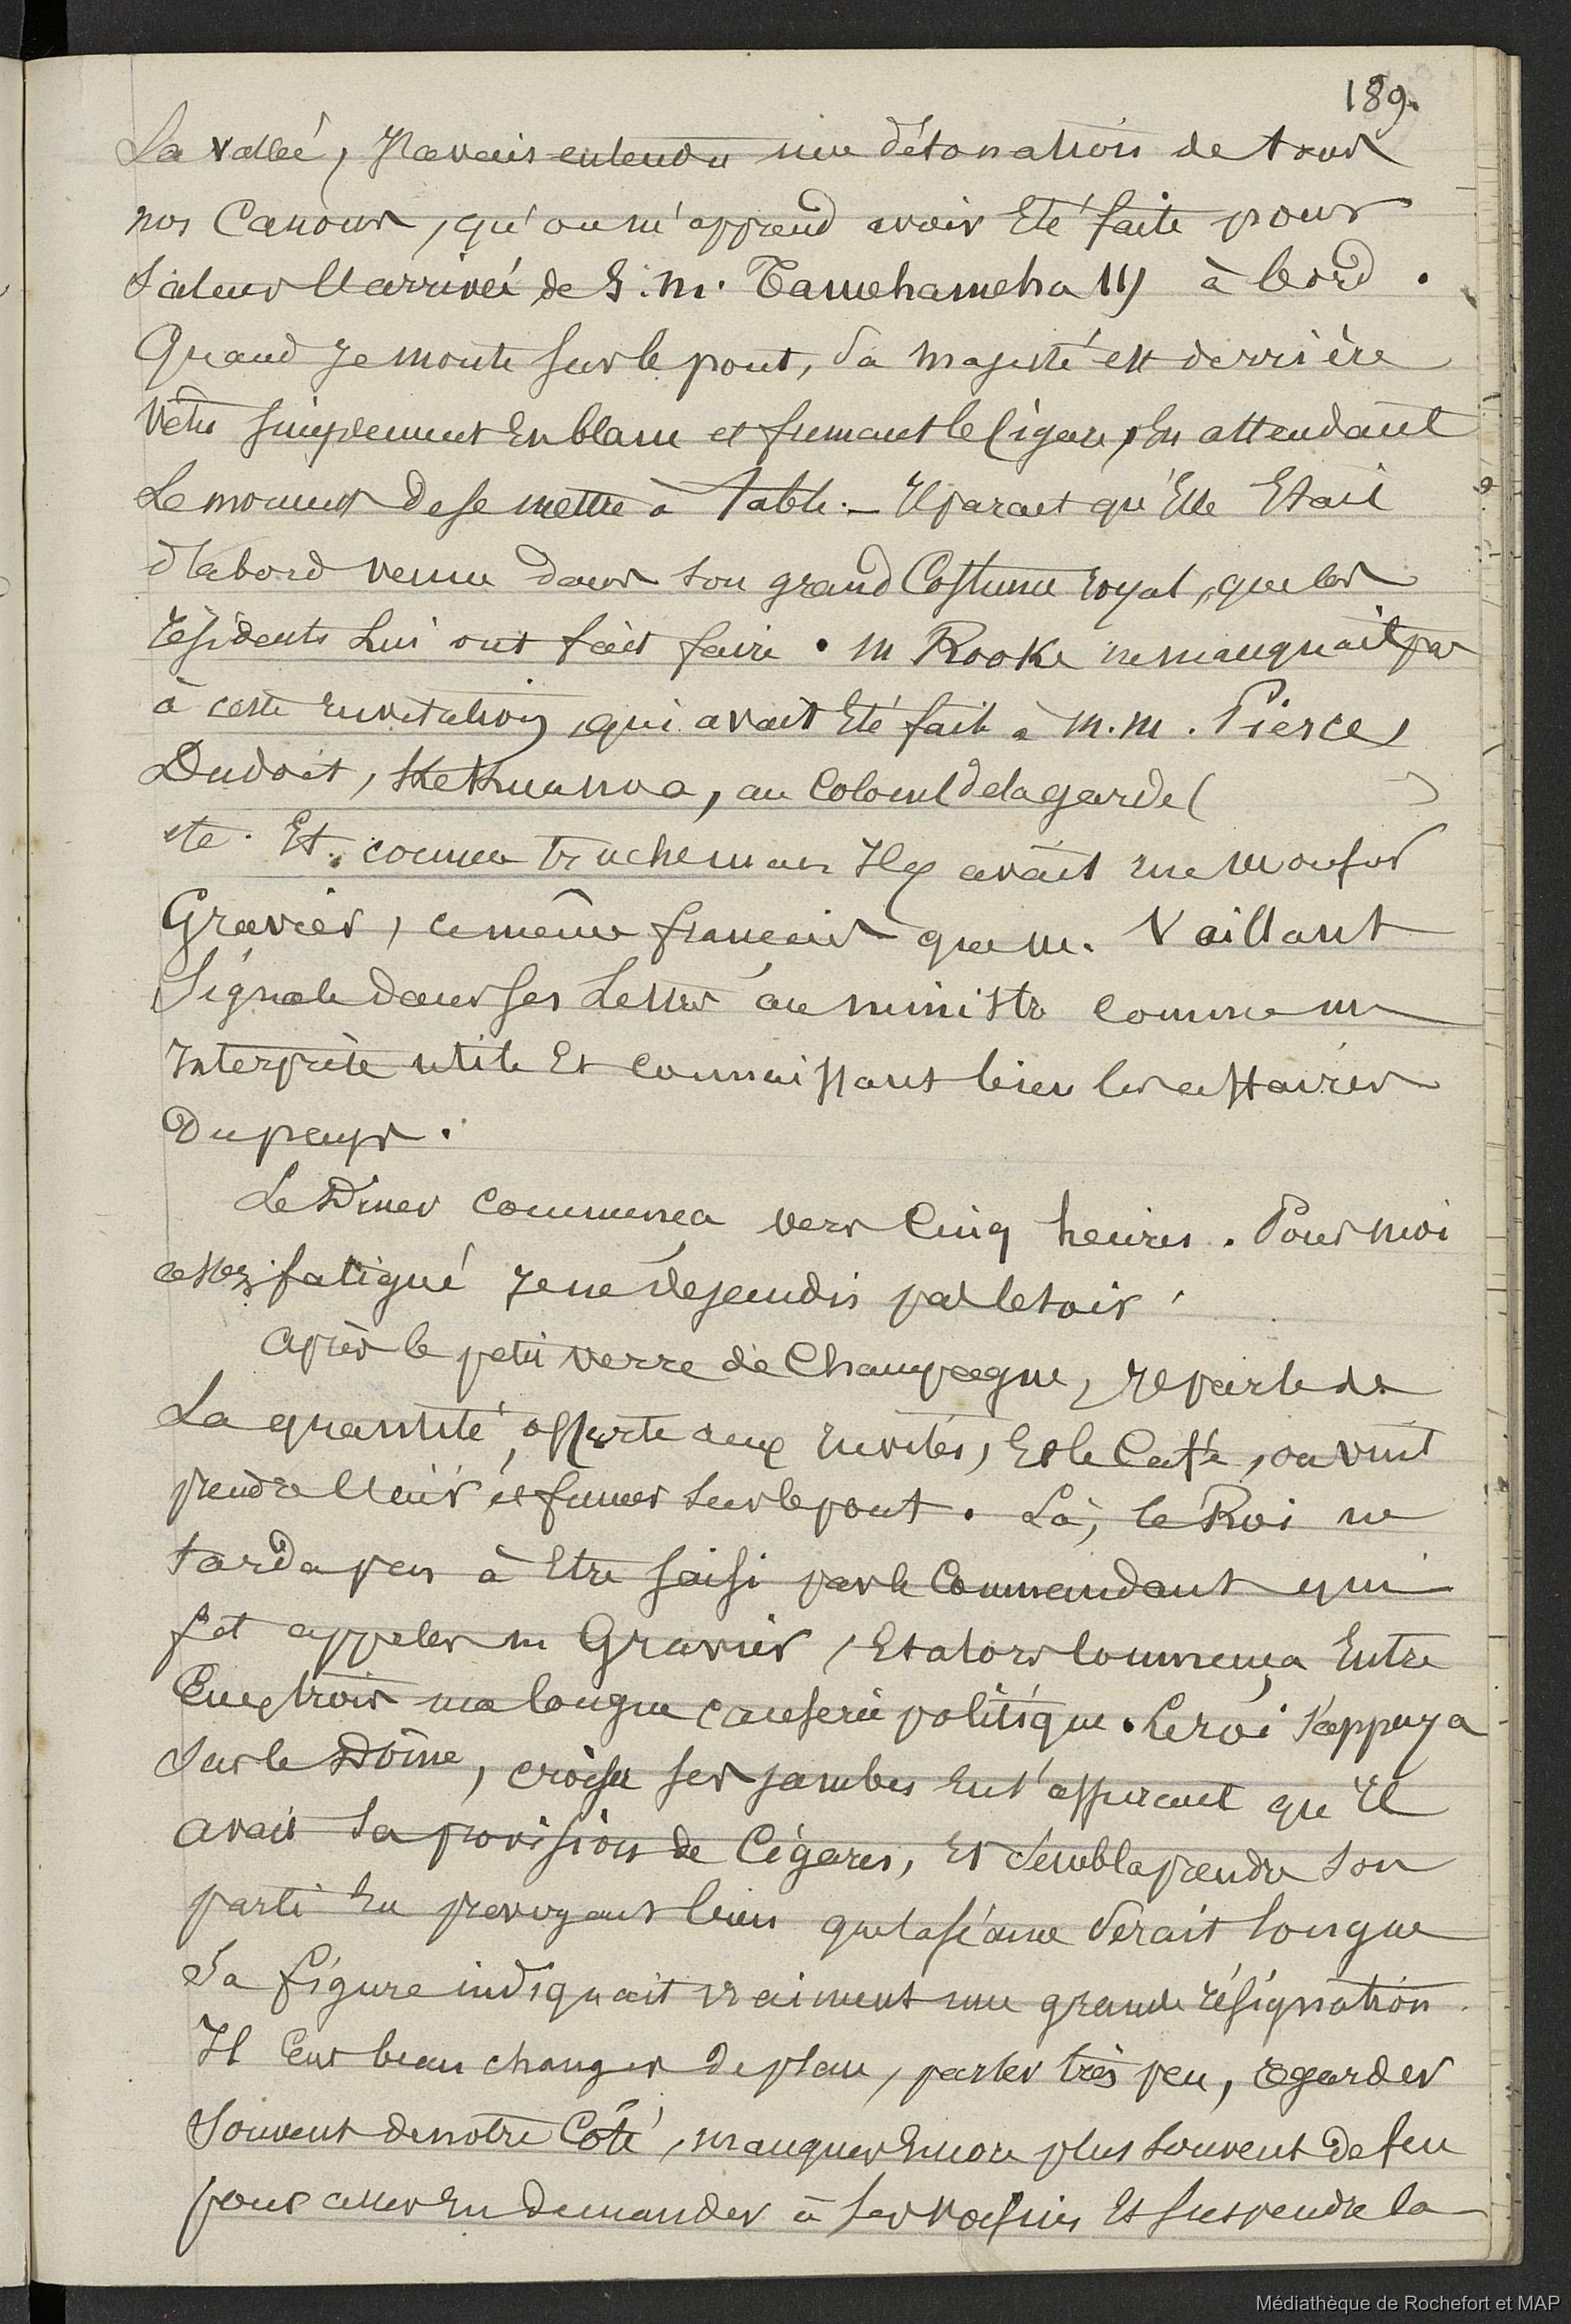 189.
La vallée, J'avais entendu une détonation de tous
nos Canons, qu'on m'apprend avoir Eté faite pour
saluer l'arrivée de S. M. Tamehameha III à bord.
Quand Je monte sur le pont, Sa Majesté est derrière
Vêtu simplement En blanc et fumant le Cigare, En attendant
Le moment de se mettre à Table. _ Il parait qu'Elle Etait
d'abord venue dans son grand Costume royal, que les
résidents Lui ont fait faire. M Rooke ne manquait pas
à cette invitation, qui avait Eté faite à M.M. Pierce,
Dudoit, Kekuanoa, au Colonel de la garde ( )
etc. Et comme truchement Il y avait un Monsr
Gravier, ce même français que M. Vaillant
Signale dans ses Lettres au ministre comme un
Interprète utile Et connaissant bien les affaires
Du pays.
Le Diner commença vers Cinq heures. Pour moi
assez fatigué Je ne descendis pas le soir.
Après le petit verre de Champagne, Je parle de
La quantité offerte aux Invités, Et le Café, on vint
prendre l'air et fumer sur le pont. Là, le Roi ne
tarda pas à Etre saisi par le Commandant qui
fit appeler M Gravier, Et alors commença Entre
Eux trois une longue causerie politique. Le roi s'appuya
sur le Dôme, croisa ses jambes En s'assurant qu'Il
avait sa provision de Cigares, Et sembla prendre son
parti En prevoyant bien que la séance serait longue
Sa figure indiquait vraiment une grande résignation.
Il Eut beau changer de place, parler très peu, regarder
Souvent de notre Côté, manquer Encore plus souvent de feu
pour aller En demander à ses voisins Et suspendre la
Médiathèque de Rochefort et MAP